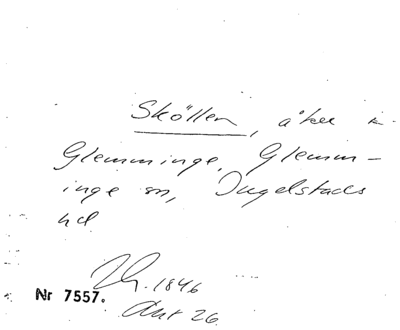 Sköllen, åker i
Glemminge, Glemm-
inge sn, Ingelstads
hd
1846
Nr 7557.
Akt 26